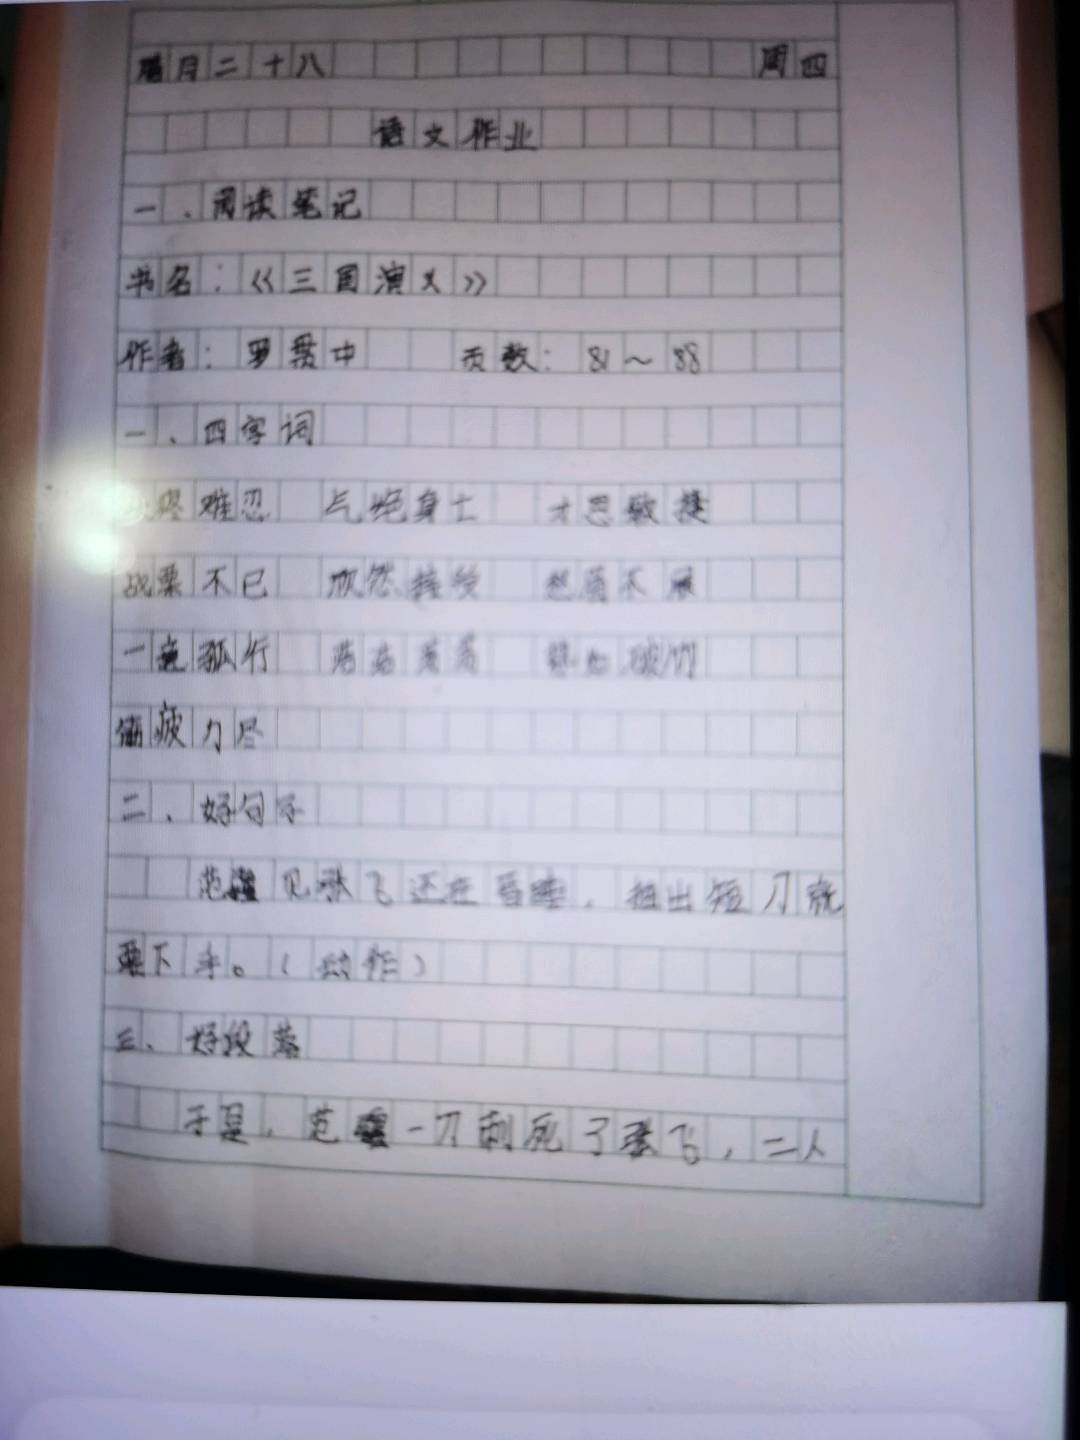 腊月二十八 周四
语文作业
一、阅读笔记
书名:《三国演义》
作者:罗贯中 页数:81~88
一、四字词
疼难忍 气绝身亡 才思敏捷
战栗不已 欣然接受 愁眉不展
一意孤行 势如破竹
筋疲力尽
二、好句子
范疆见张飞还在昏睡,拍出短刀就
要下手。(动作)
三、好段落
于是,范疆一刀刺死了张飞,二人